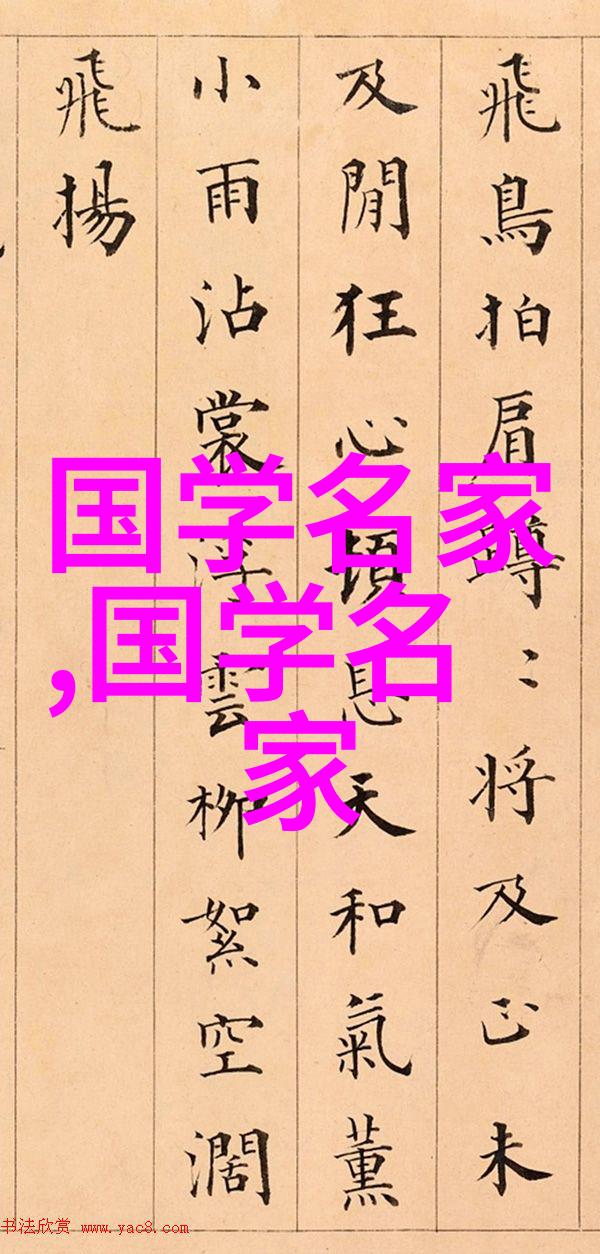 飛鳥拍肩蹲〻将及正未
及閒狂心頓息天和氣薰
小雨沾裳浮雲柳絮空濶
飛揚
国学名家
,国学名
家
书法欣赏 www.yac8.com